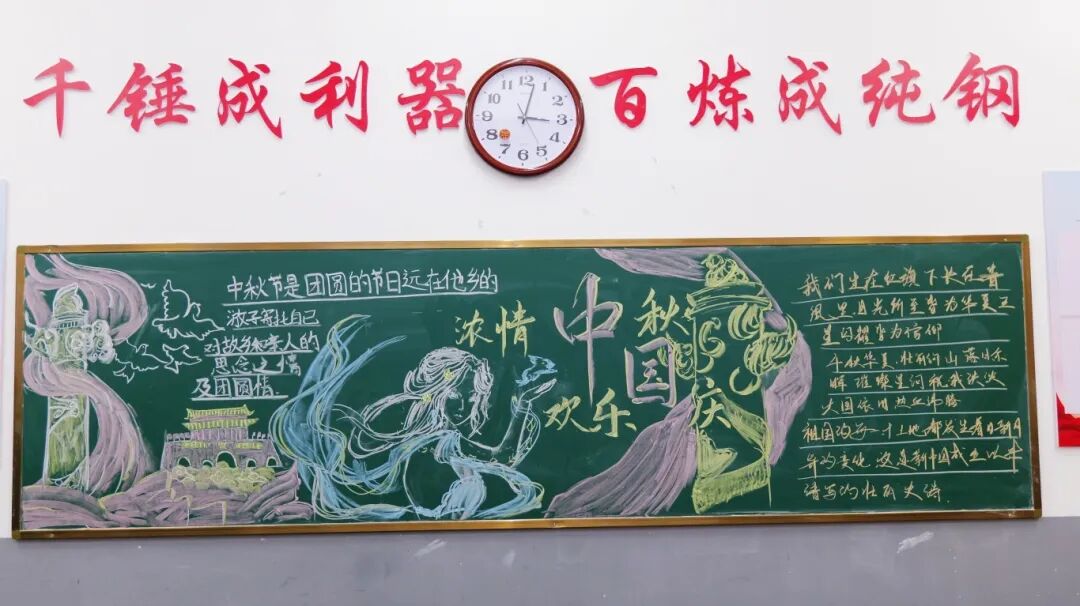 千锤成利器 百炼成纯钢
12 1 2 3 4 5 6 7 8 9 10 11
中秋节是团圆的节日远在他乡的
游子寄托自己
对故乡和亲人的
思念之情
及团圆情
浓情中秋
欢乐国庆
我们生在红旗下长在春
风里目光所至皆为华夏五
星闪耀皆为信仰
千秋华夏壮丽河山落日余
晖璀璨星河祝我泱泱
大国
祖国的每一寸土地都发生着日新月
异的变化这是新中国成立以来
谱写的壮丽史诗